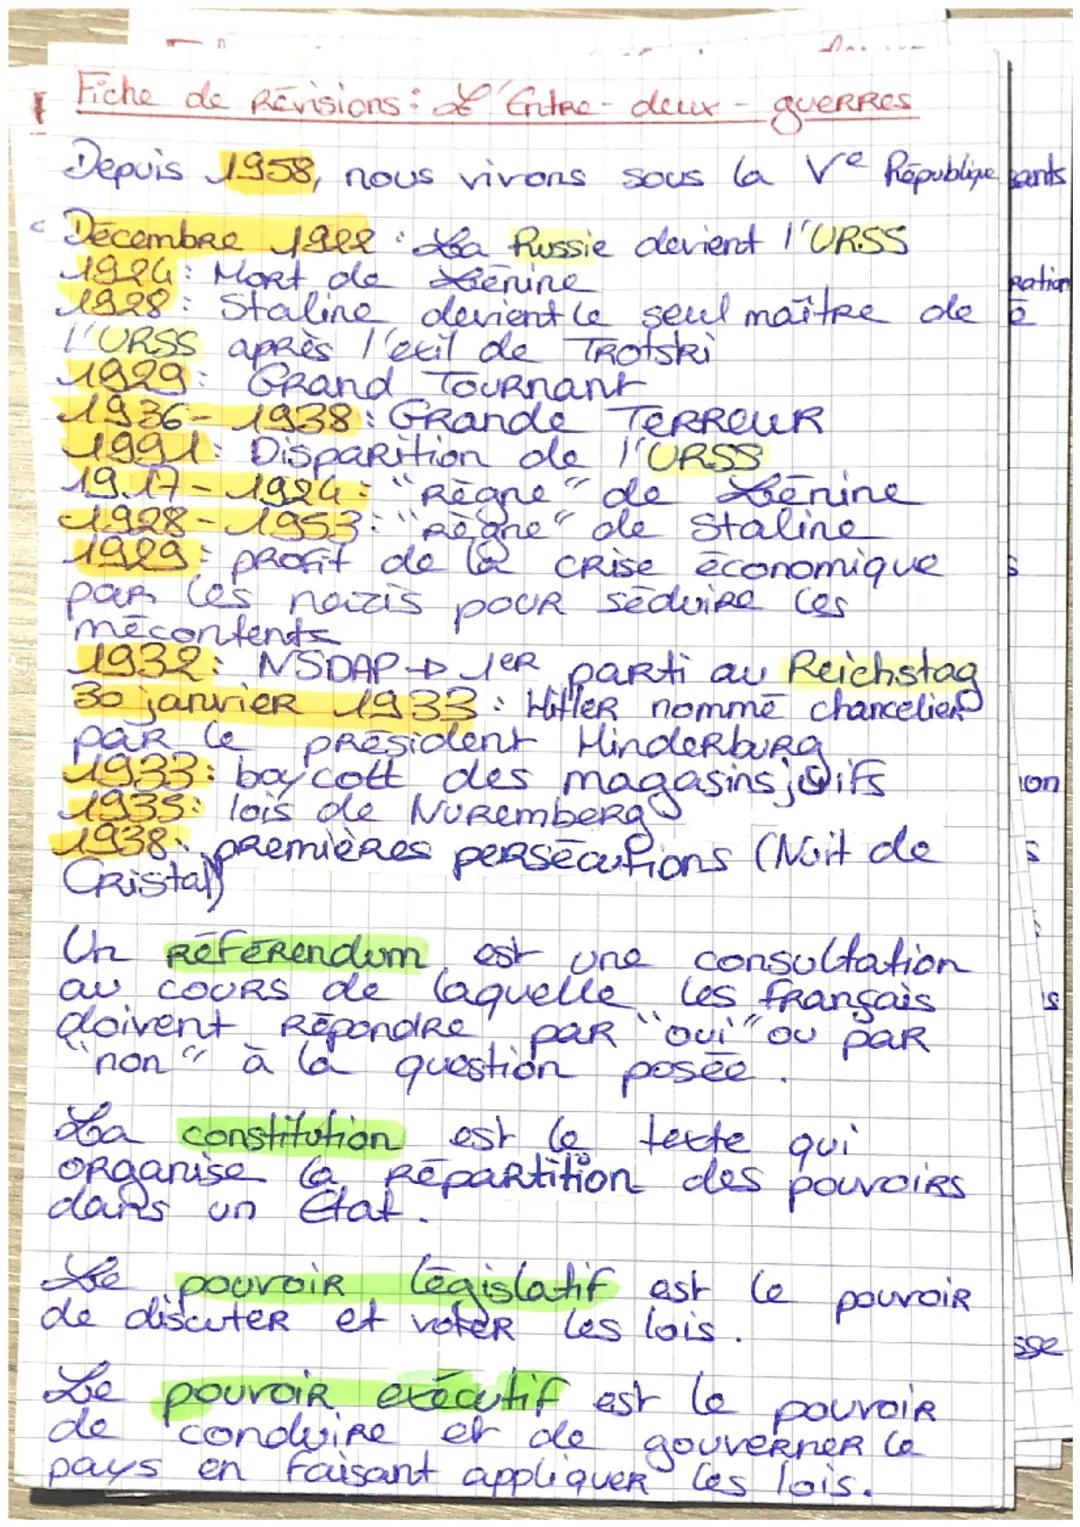 Fiche de Révisions : L'Entre-deux-guerres
Depuis 1958, nous vivons sous la Ve République
Décembre 1922 : La Russie devient l'URSS
1924 : Mort de Lénine
1928 : Staline devient le seul maître de
l'URSS après l'exil de Trotski
1929 : Grand Tournant
1936-1938 : Grande Terreur
1991 : Disparition de l'URSS
1917-1924 : "Règne" de Lénine
1928-1953 : "règne" de Staline
1929 : profit de la crise économique
par les nazis pour séduire les
mécontents
1932 : NSDAP → 1er parti au Reichstag
30 janvier 1933 : Hitler nommé chancelier
par le président Hinderburg
1933 : boycott des magasins juifs
1935 : lois de Nuremberg
1938 : premières persécutions (Nuit de
Cristal)
Un référendum est une consultation
au cours de laquelle les français
doivent répondre par "oui" ou par
"non" à la question posée.
La constitution est le texte qui
organise la répartition des pouvoirs
dans un État.
Le pouvoir législatif est le pouvoir
de discuter et voter les lois.
Le pouvoir exécutif est le pouvoir
de conduire et de gouverner le
pays en faisant appliquer les lois.